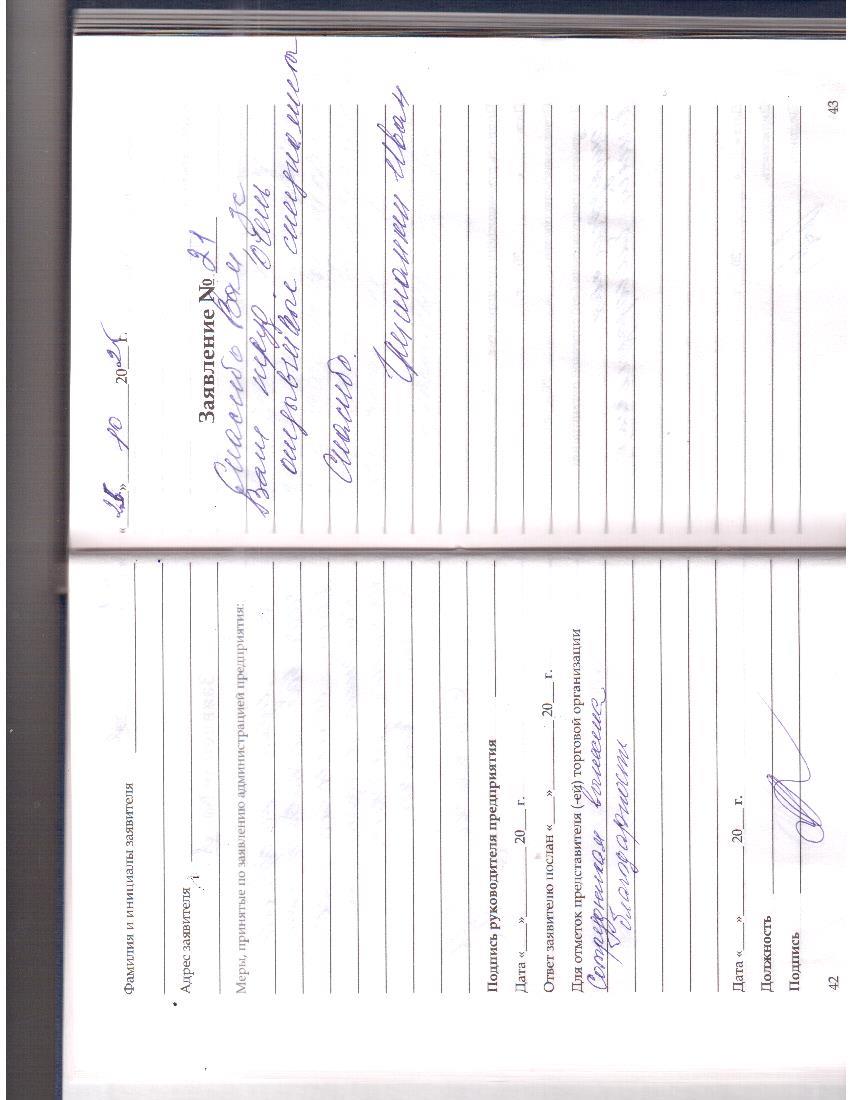 Фамилия и инициалы заявителя
Адрес заявителя
Меры, принятые по заявлению администрацией предприятия:
Подпись руководителя предприятия
Дата «___» ________ 20___ г.
Ответ заявителю послан «___» ________ 20___ г.
Для отметок представителя (-ей) торговой организации
Сотрудникам вынесена
благодарность
Дата «___» ________ 20___ г.
Должность
Подпись
42
« » 10 2025 г.
Заявление № 21
Спасибо Вам за
Ваш труд очень
отзывчивые специалисты
Спасибо.
Иван
43